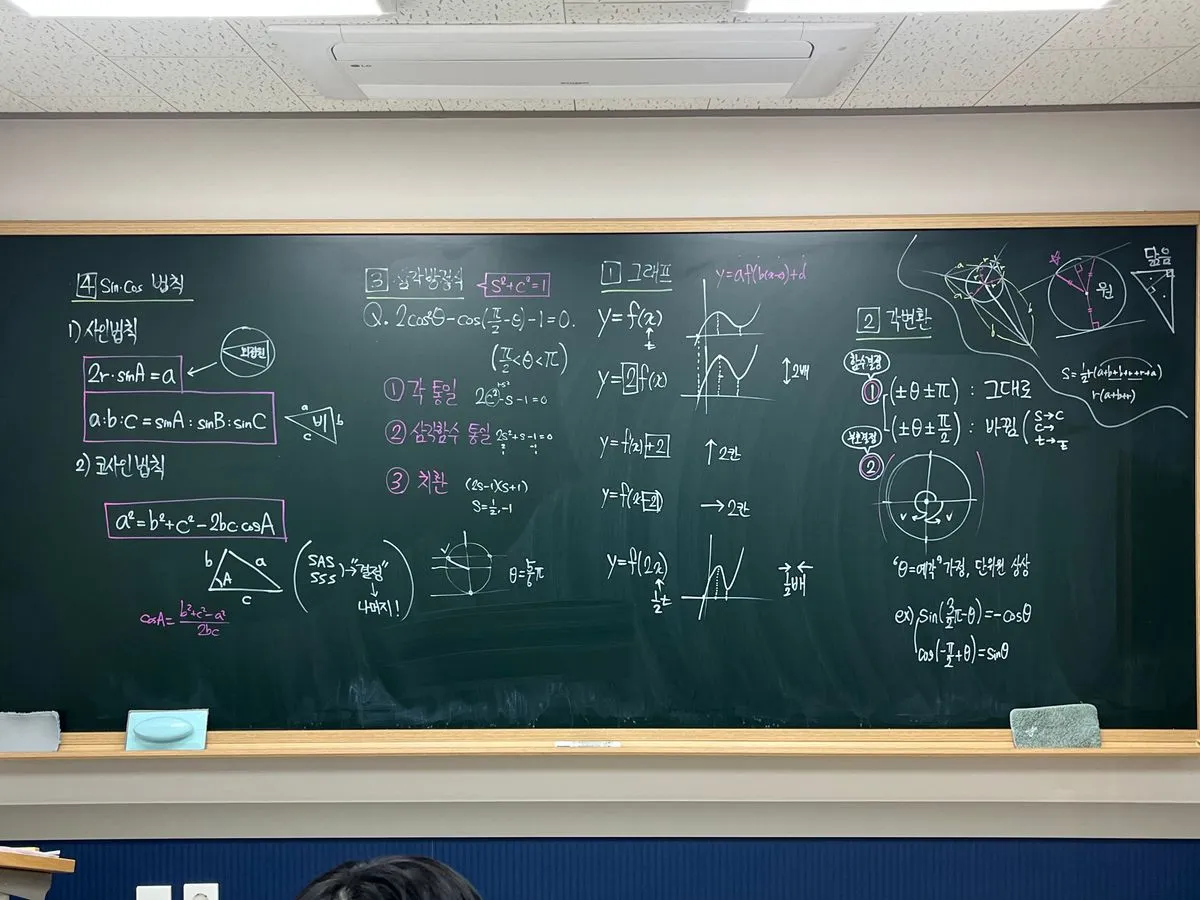 LG
4 Sin·Cos 법칙
1) 사인법칙
2r·sinA = a
외접원
a:b:c = sinA : sinB : sinC
a
비
b
c
2) 코사인법칙
a² = b² + c² - 2bc cosA
b
a
A
c
cosA = (b²+c²-a²)/2bc
(SAS
SSS) → "결정"
↓
나머지!
3 삼각방정식
S²+C²=1
Q. 2cos²θ - cos(π/2 - θ) - 1 = 0.
(π/2 < θ < π)
① 각 통일
-S-1=0
② 삼각함수 통일 2S²+S-1=0
③ 치환 (2S-1)(S+1)
S=1/2, -1
θ=5/6π
1 그래프
y=f(x)
↑
t
y=2f(x)
↕2배
y=f(x)+2
↑2칸
y=f(x-2)
→2칸
y=f(2x)
↑
1/2t
→←
1/2배
2 각변환
함수결정
① (±θ±π) : 그대로
(±θ±π/2) : 바뀜 (S→C
C→
t→1/t
부호결정
②
"θ=예각"가정, 단위원 상상
ex) sin(3/2π-θ) = -cosθ
cos(-π/2+θ) = sinθ
a
a
r
r
b
b
원
닮음
S=1/2r(a+b+b+r+r+a)
r(a+b+r)